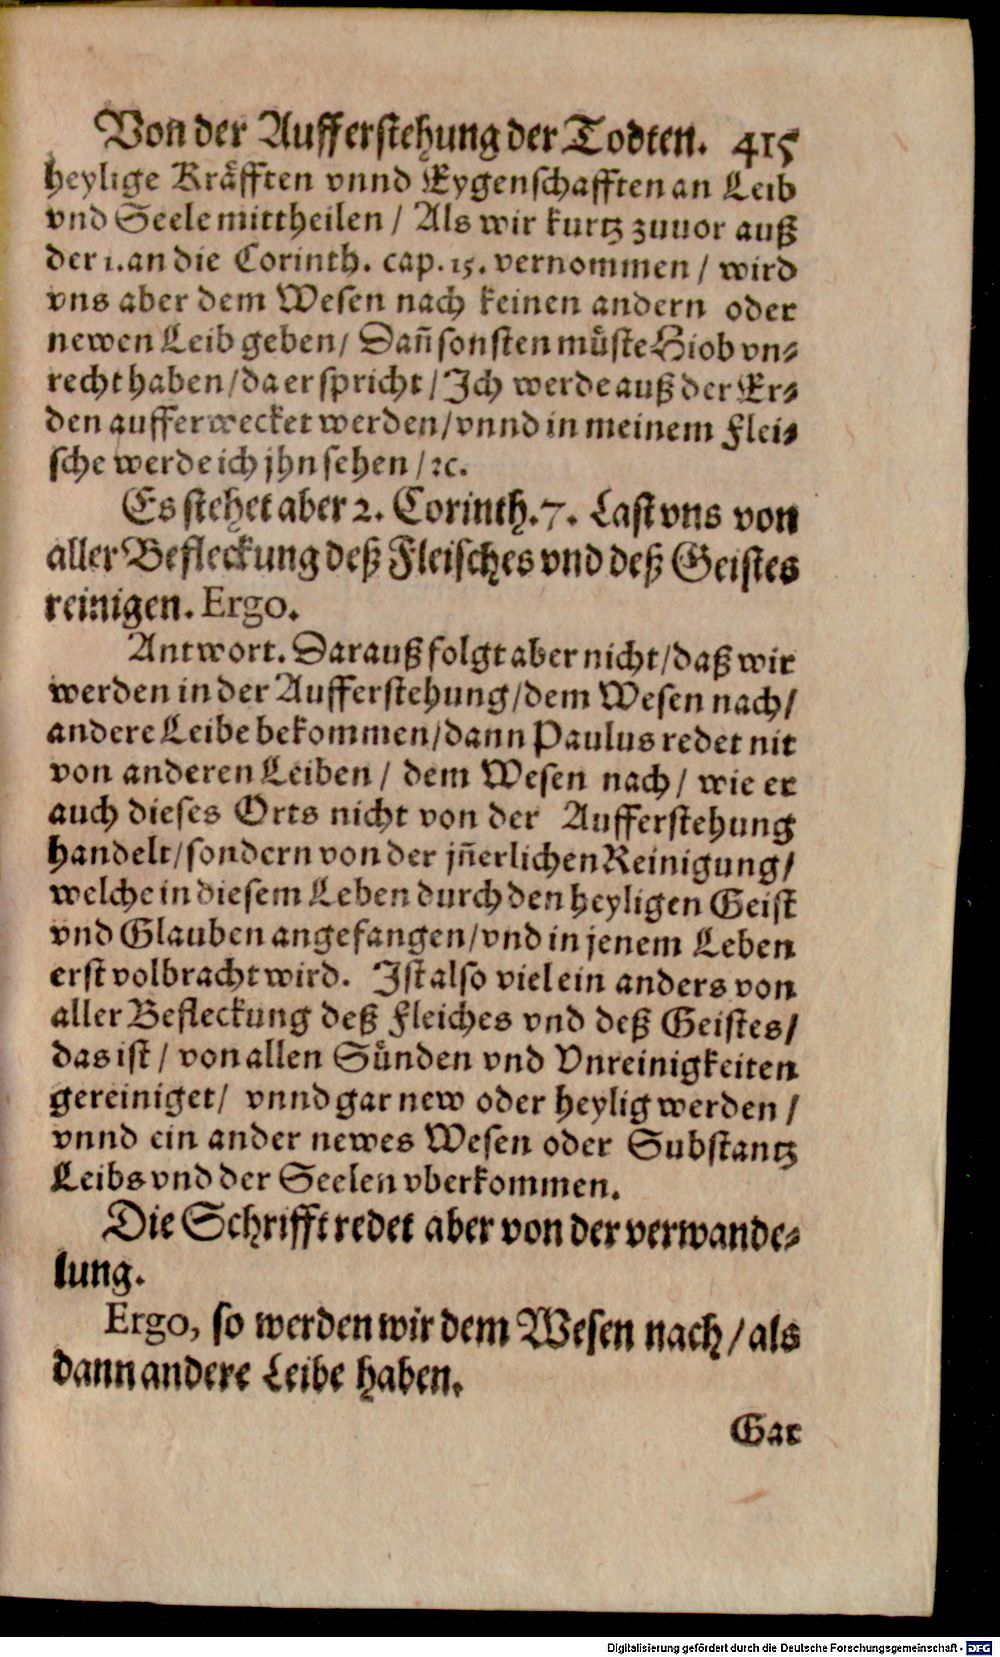 Von der Aufferstehung der Todten. 415
heylige Kräfften vnnd Eygenschafften an Leib
vnd Seele mittheilen / Als wir kurtz zuuor auß
der 1. an die Corinth. cap. 15. vernommen / wird
vns aber dem Wesen nach keinen andern oder
newen Leib geben / Dañ sonsten müste Hiob vn⸗
recht haben / da er spricht / Ich werde auß der Er⸗
den aufferwecket werden / vnnd in meinem Flei⸗
sche werde ich jhn sehen / ꝛc.
Es stehet aber 2. Corinth. 7. Last vns von
aller Befleckung deß Fleisches vnd deß Geistes
reinigen. Ergo.
Antwort. Darauß folgt aber nicht / daß wir
werden in der Aufferstehung / dem Wesen nach /
andere Leibe bekommen / dann Paulus redet nit
von anderen Leiben / dem Wesen nach / wie er
auch dieses Orts nicht von der Aufferstehung
handelt / sondern von der jñerlichen Reinigung /
welche in diesem Leben durch den heyligen Geist
vnd Glauben angefangen / vnd in jenem Leben
erst volbracht wird. Ist also viel ein anders von
aller Befleckung deß Fleiches vnd deß Geistes /
das ist / von allen Sünden vnd Vnreinigkeiten
gereiniget / vnnd gar new oder heylig werden /
vnnd ein ander newes Wesen oder Substantz
Leibs vnd der Seelen vberkommen.
Die Schrifft redet aber von der verwande⸗
lung.
Ergo, so werden wir dem Wesen nach / als
dann andere Leibe haben.
Gar
Digitalisierung gefördert durch die Deutsche Forschungsgemeinschaft - DFG